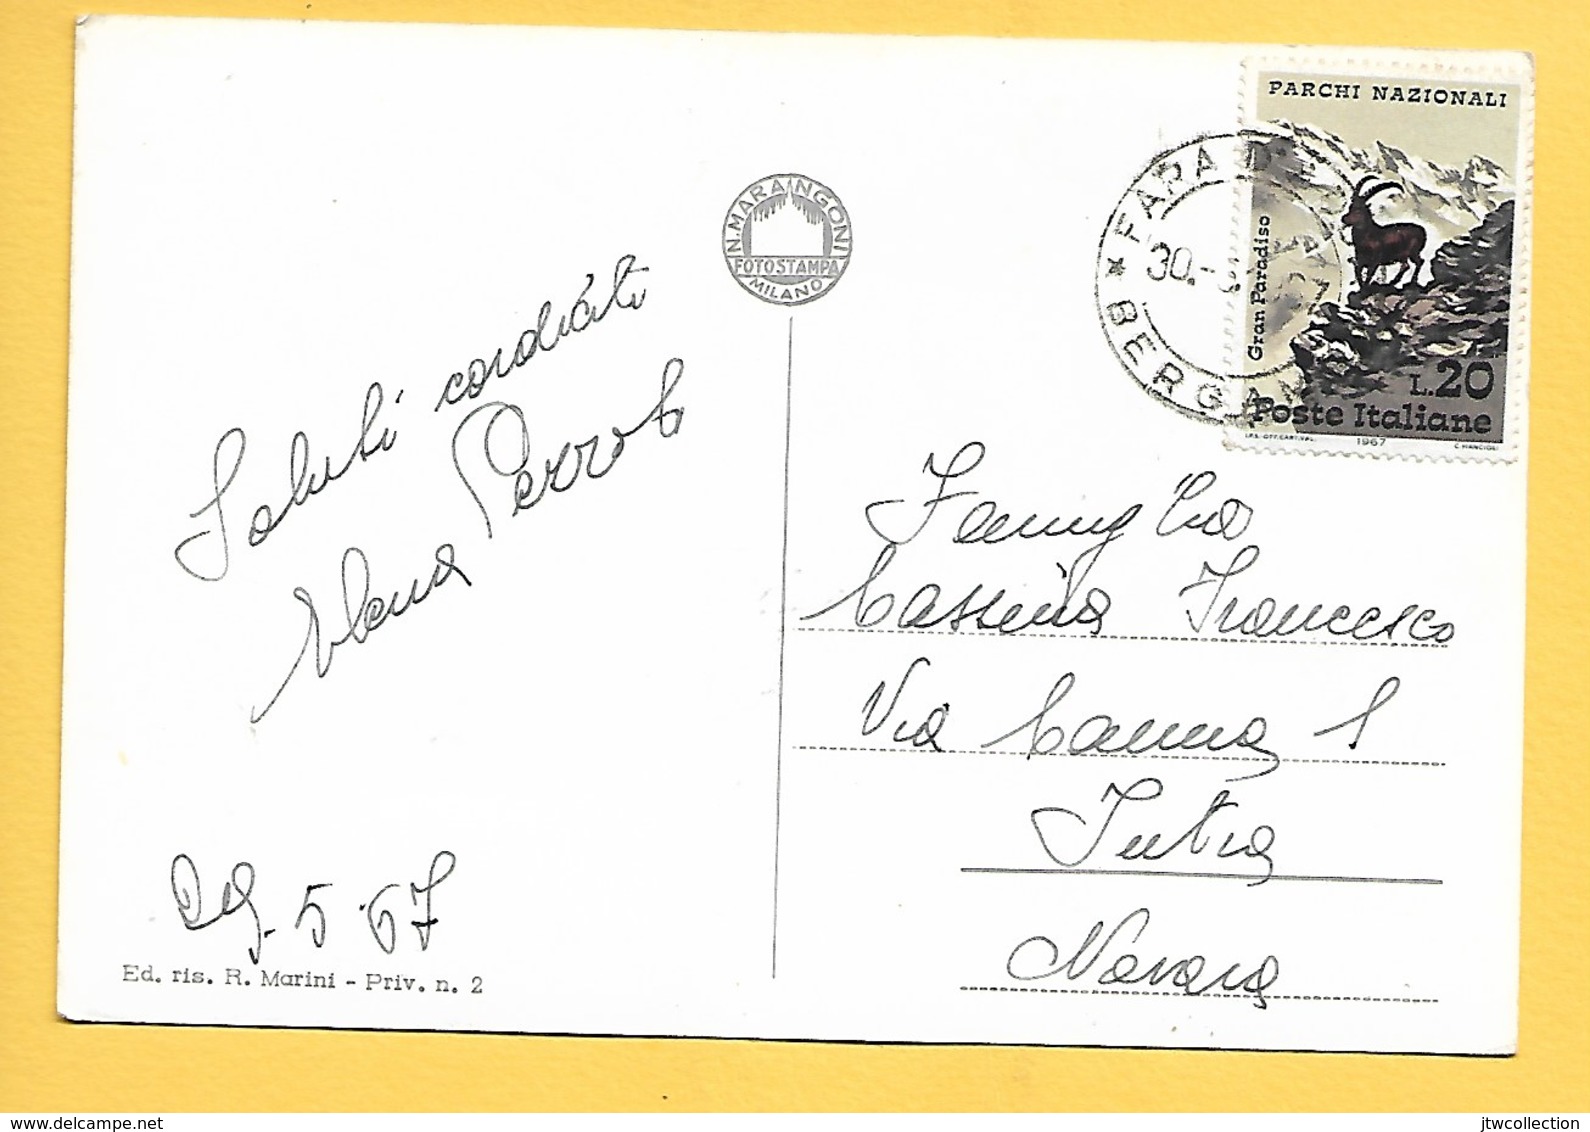 Saluti cordiali
Elena
29.5.67
Ed. ris. R. Marini - Priv. n. 2
N. MARANGONI
FOTOSTAMPA
MILANO
PARCHI NAZIONALI
Gran Paradiso
L.20
Poste Italiane
I.P.S.-OFF.CARTE VAL. 1967 C. MANCIOLI
FARA
30.
* BERGAMO
Famiglia
Cassina Francesco
Via Canna 1
Intra
Novara
jtwcollection